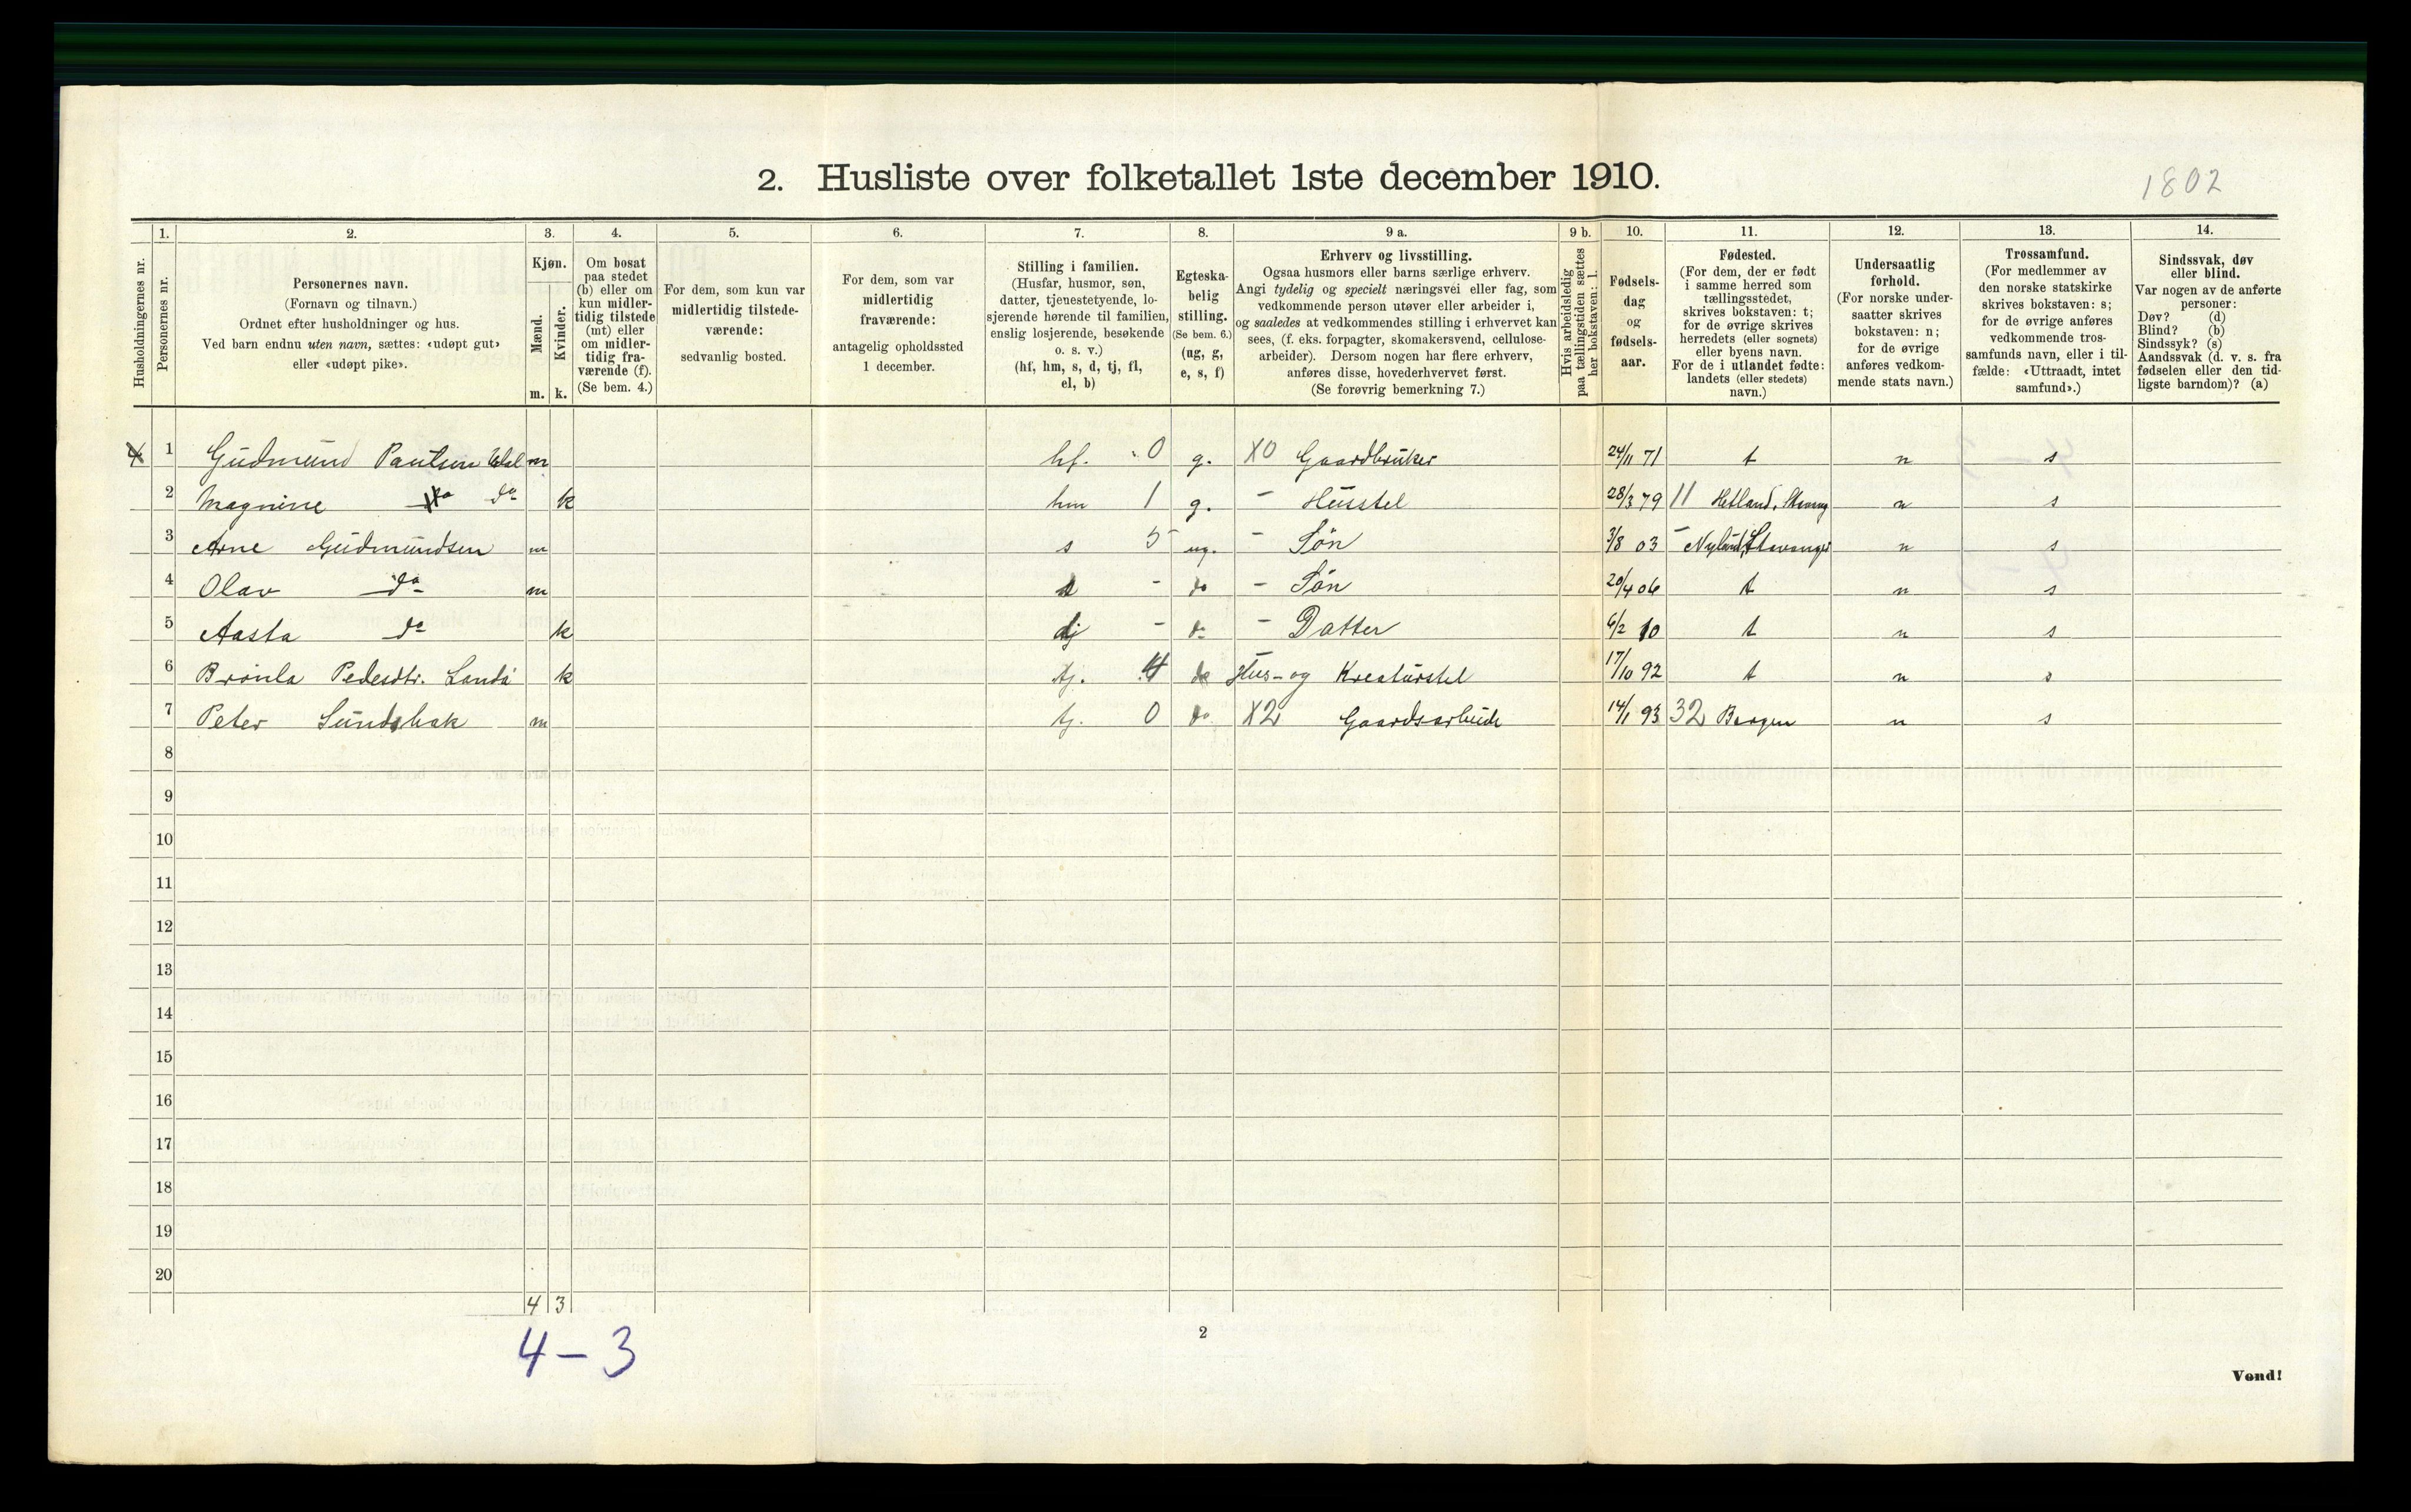 2. Husliste over folketallet 1ste december 1910.
1802
1. 2. 3. 4. 5. 6. 7. 8. 9 a. 9 b. 10. 11. 12. 13. 14.
Husholdningernes nr.
Personernes nr.
Personernes navn.
(Fornavn og tilnavn.)
Ordnet efter husholdninger og hus.
Ved barn endnu uten navn, sættes: «udøpt gut»
eller «udøpt pike».
Kjøn.
Mænd.
Kvinder.
m. k.
Om bosat
paa stedet
(b) eller om
kun midler-
tidig tilstede
(mt) eller
om midler-
tidig fra-
værende (f).
(Se bem. 4.)
For dem, som kun var
midlertidig tilstede-
værende:
sedvanlig bosted.
For dem, som var
midlertidig
fraværende:
antagelig opholdssted
1 december.
Stilling i familien.
(Husfar, husmor, søn,
datter, tjenestetyende, lo-
sjerende hørende til familien,
enslig losjerende, besøkende
o. s. v.)
(hf, hm, s, d, tj, fl,
el, b)
Egteska-
belig
stilling.
(Se bem. 6.)
(ug, g,
e, s, f)
Erhverv og livsstilling.
Ogsaa husmors eller barns særlige erhverv.
Angi tydelig og specielt næringsvei eller fag, som
vedkommende person utøver eller arbeider i,
og saaledes at vedkommendes stilling i erhvervet kan
sees, (f. eks. forpagter, skomakersvend, cellulose-
arbeider). Dersom nogen har flere erhverv,
anføres disse, hovederhvervet først.
(Se forøvrig bemerkning 7.)
Hvis arbeidsledig
paa tællingstiden sættes
her bokstaven: l.
Fødsels-
dag
og
fødsels-
aar.
Fødested.
(For dem, der er født
i samme herred som
tællingsstedet,
skrives bokstaven: t;
for de øvrige skrives
herredets (eller sognets)
eller byens navn.
For de i utlandet fødte:
landets (eller stedets)
navn.)
Undersaatlig
forhold.
(For norske under-
saatter skrives
bokstaven: n;
for de øvrige
anføres vedkom-
mende stats navn.)
Trossamfund.
(For medlemmer av
den norske statskirke
skrives bokstaven: s;
for de øvrige anføres
vedkommende tros-
samfunds navn, eller i til-
fælde: «Uttraadt, intet
samfund».)
Sindssvak, døv
eller blind.
Var nogen av de anførte
personer:
Døv? (d)
Blind? (b)
Sindssyk? (s)
Aandssvak (d. v. s. fra
fødselen eller den tid-
ligste barndom)? (a)
1 Gudmund Paulsen m hf. 0 g. X0 Gaardbruker 24/11 71 t n s
2 Magnine do k hm 1 g. - Husstel 28/3 79 11 Hetland, n s
3 Arne Gudmundsen m s 5 ug. - Søn 3/8 03 - Nylund, Stavanger n s
4 Olav do m s - do - Søn 20/4 06 t n s
5 Aasta do k - do - Datter 6/2 10 t n s
6 Pedersdtr. k tj. 4 do Hus- og Kreaturstel 17/10 92 t n s
7 Peter m tj. 0 do X2 Gaardsarbeide 14/1 93 32 Bergen n s
8
9
10
11
12
13
14
15
16
17
18
19
20
4 3
4-3
2
Vend!